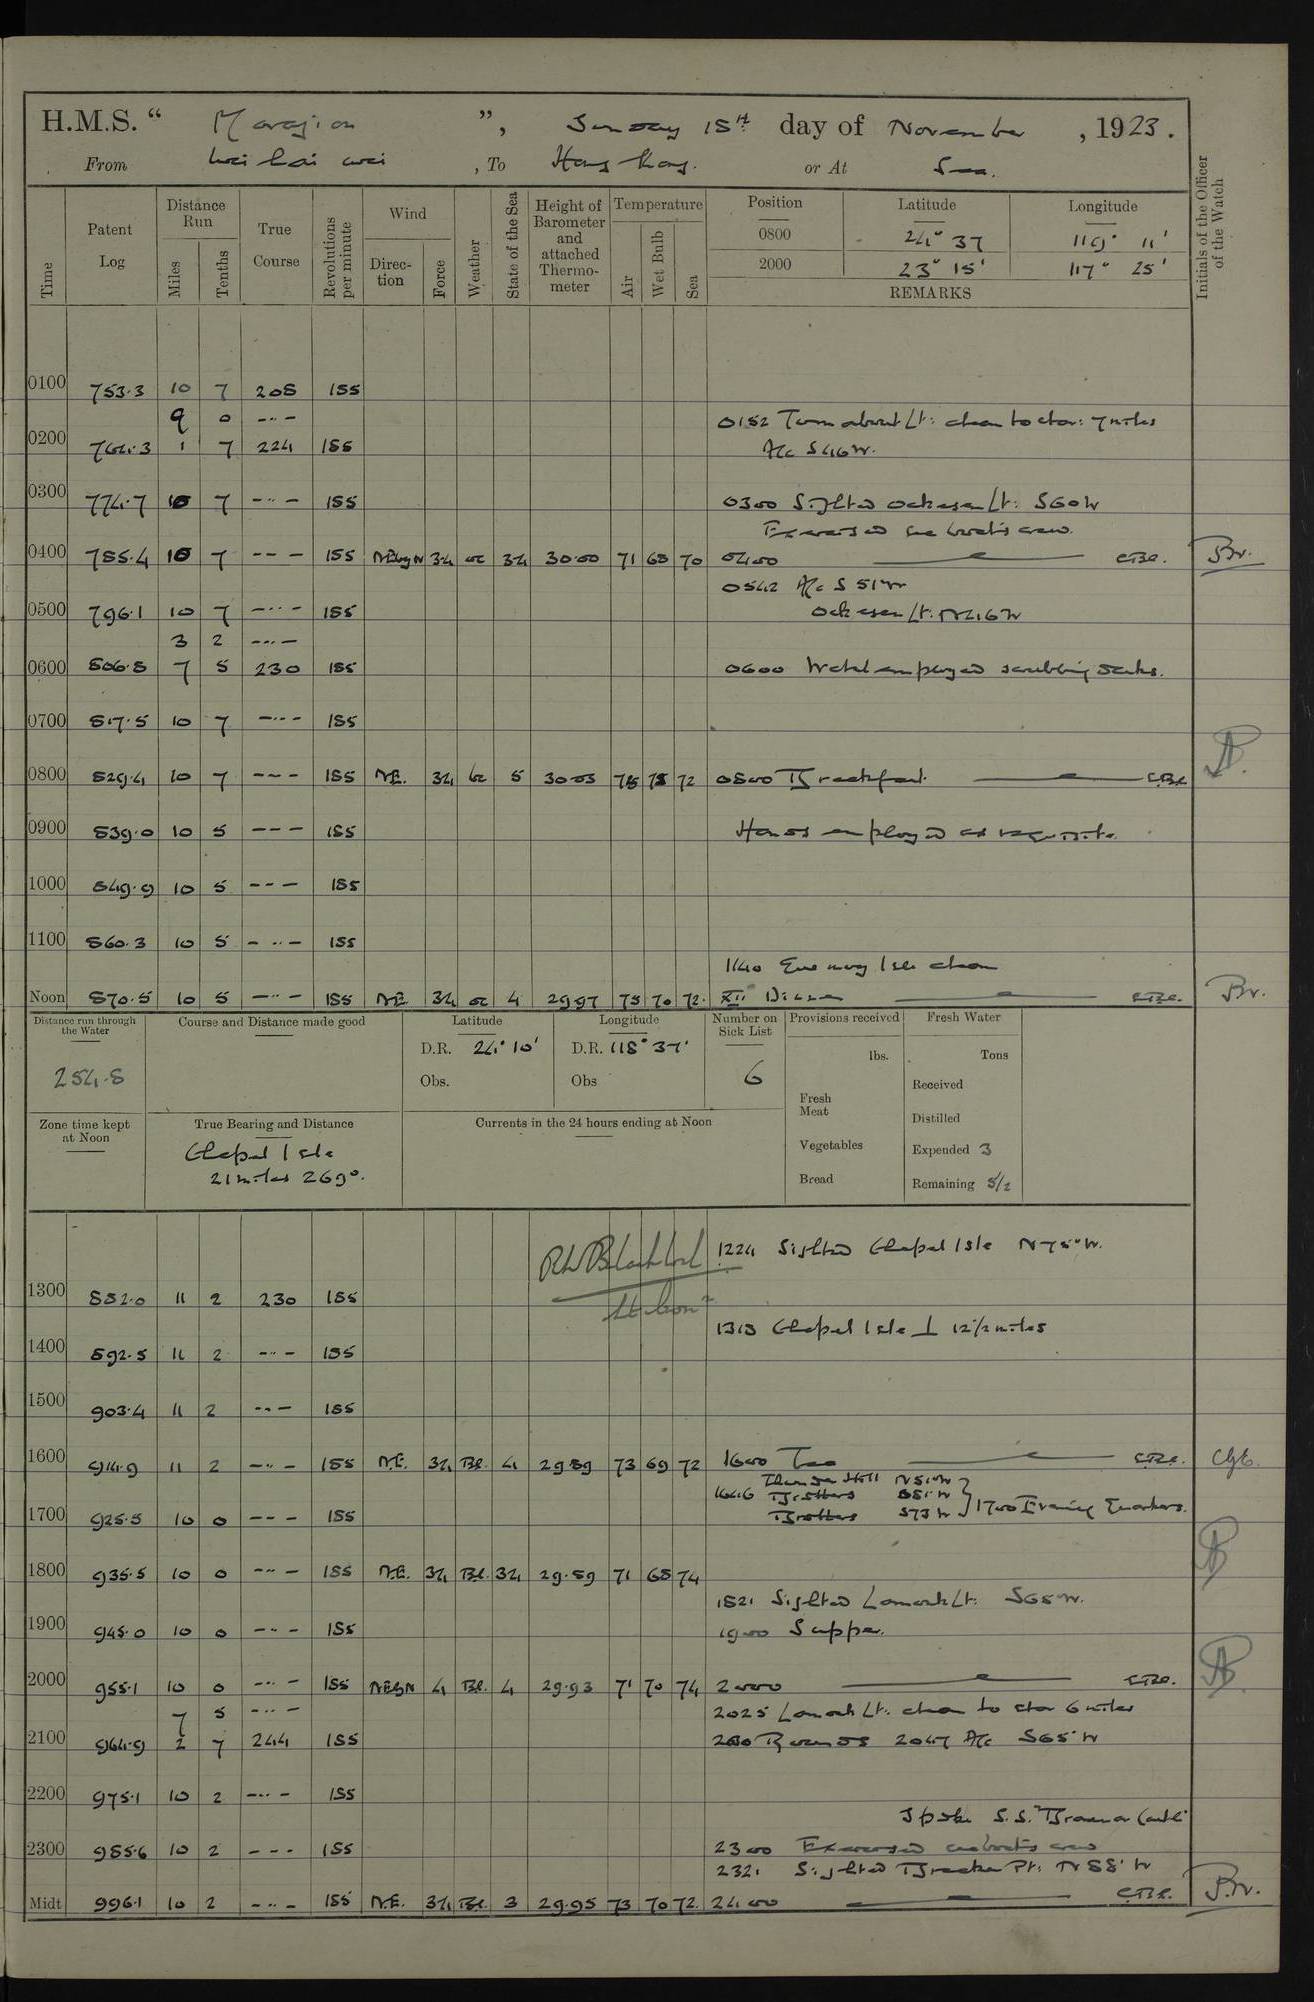 H.M.S. " Marazion ", Sunday 18th day of November, 1923.
From Wei hai wei, To Hong Kong. or At Sea.
Time
Patent Log
Distance Run
Miles
Tenths
True Course
Revolutions per minute
Wind
Direction
Force
Weather
State of the Sea
Height of Barometer and attached Thermometer
Temperature
Air
Wet Bulb
Sea
Position Latitude Longitude
0800 24° 37 119° 11'
2000 23° 15' 117° 25'
REMARKS
Initials of the Officer of the Watch
0100 753.3 10 7 208 155
9 0 -..-
0152 Turnabout Lt: abeam to star: 7 miles
0200 764.3 1 7 224 155
A/c S46W.
0300 774.7 10 7 -..- 155 0300 Sighted Ockseu Lt: S60W
Exercised sea boat's crew.
0400 785.4 10 7 --- 155 NEbyN 34 oc 34 30.00 71 68 70 0400
0542 A/c S 51W
0500 796.1 10 7 -..- 155
Ockseu Lt. N46W
3 2 -..-
0600 806.8 7 5 230 155 0600 Watch employed scrubbing decks.
0700 817.5 10 7 -..- 155
0800 829.4 10 7 --- 155 NE. 34 bc 5 30.03 75 73 72 0800 Breakfast.
0900 839.0 10 5 --- 155 Hands employed as requisite.
1000 849.9 10 5 --- 155
1100 860.3 10 5 -..- 155
1140 abeam
Noon 870.5 10 5 -..- 155 NE 34 oc 4 29.97 75 70 72. XII Dinner
Distance run through the Water
254.8
Course and Distance made good
Latitude
D.R. 24° 10'
Obs.
Longitude
D.R. 118° 37'
Obs
Number on Sick List
6
Provisions received
lbs.
Fresh Meat
Vegetables
Bread
Fresh Water
Tons
Received
Distilled
Expended 3
Remaining 51/2
Zone time kept at Noon
True Bearing and Distance
Chapel Isle
21 miles 269°.
Currents in the 24 hours ending at Noon
1224 Sighted Chapel Isle N75°W.
1300 882.0 11 2 230 155
1313 Chapel Isle ⊥ 12 1/2 miles
1400 892.5 11 2 -..- 155
1500 903.4 11 2 -..- 155
1600 914.9 11 2 -..- 155 NE. 34 Bc. 4 29.89 73 69 72 1600 Tea
1646 Brothers
Brothers S73W
1700 Evening Quarters.
1700 925.5 10 0 --- 155
1800 935.5 10 0 -..- 155 NE. 34 Bc. 34 29.89 71 68 74
1821 Sighted Lamock Lt: S68W.
1900 945.0 10 0 -..- 155 1900 Supper.
2000 955.1 10 0 -..- 155 NEbN 4 Bc. 4 29.93 71 70 74 2000
7 5 -..-
2025 Lamock Lt: abeam to star 6 miles
2100 964.9 2 7 244 155 Rounds 2047 A/c S65°W
2200 975.1 10 2 -..- 155
Spoke S.S. "Braemar Castle"
2300 985.6 10 2 --- 155 2300 Exercised sea boat's crew
2321 Sighted Breaker Pt: N88°W
Midt 996.1 10 2 -..- 155 NE. 34 Bc. 3 29.95 73 70 72. 2400